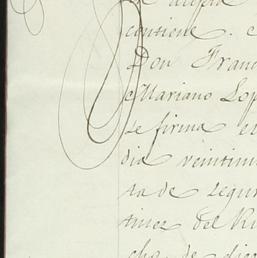 contiene. e
Don Franc
Mariano Lop
se firma e
dia veintin
ra de segu
tinez del Ri
cho de dic